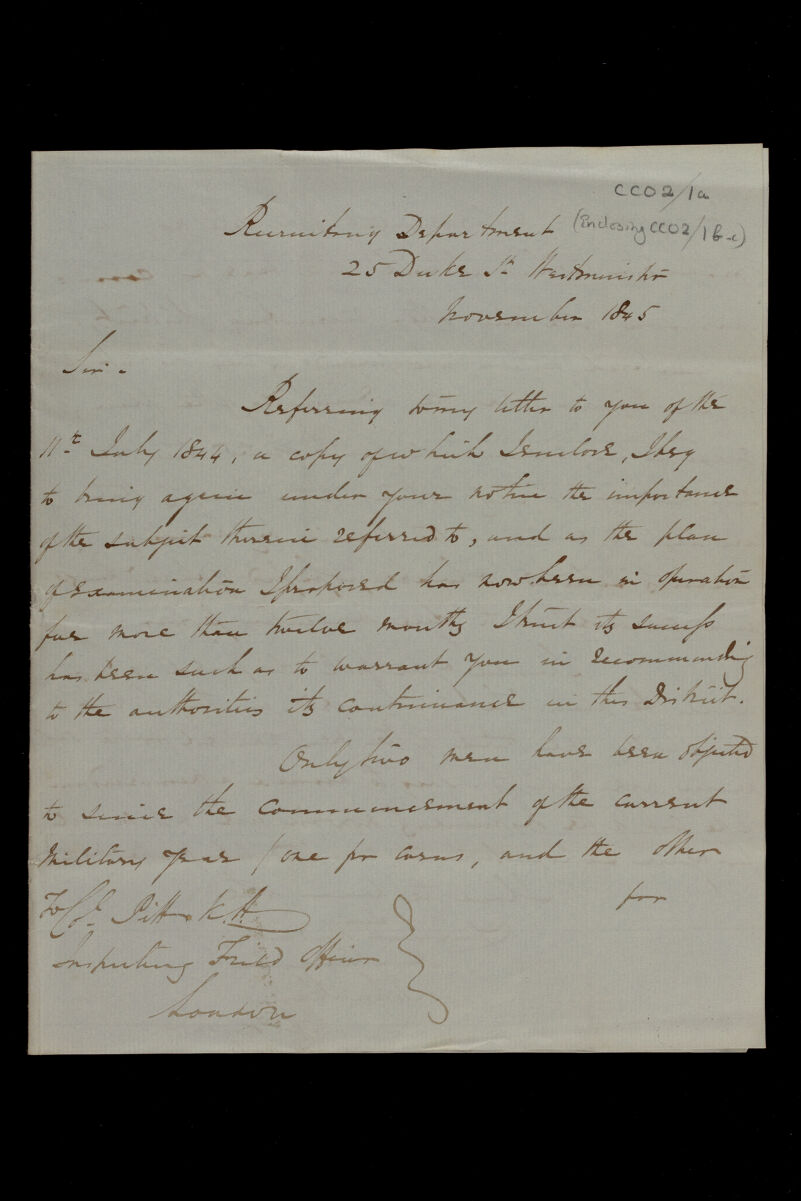 CCO2/1a
(Enclosing CCO2/1b-c)
Recruiting Department
25 Duke St. Westminster
November 1845
Sir.
Referring to my letter to you of the
11th July 1844, a copy of which I enclose, I beg
to bring again under your notice the importance
of the subject therein referred to, and as the plan
of examination I proposed has now been in operation
for more than twelve months I trust its success
has been such as to warrant you in recommending
to the authorities its continuance in this District.
Only two men have been objected
to since the commencement of the current
Military year / one for corns, and the other
for
To Col. Pitt K.H.
Inspecting Field Officer
London